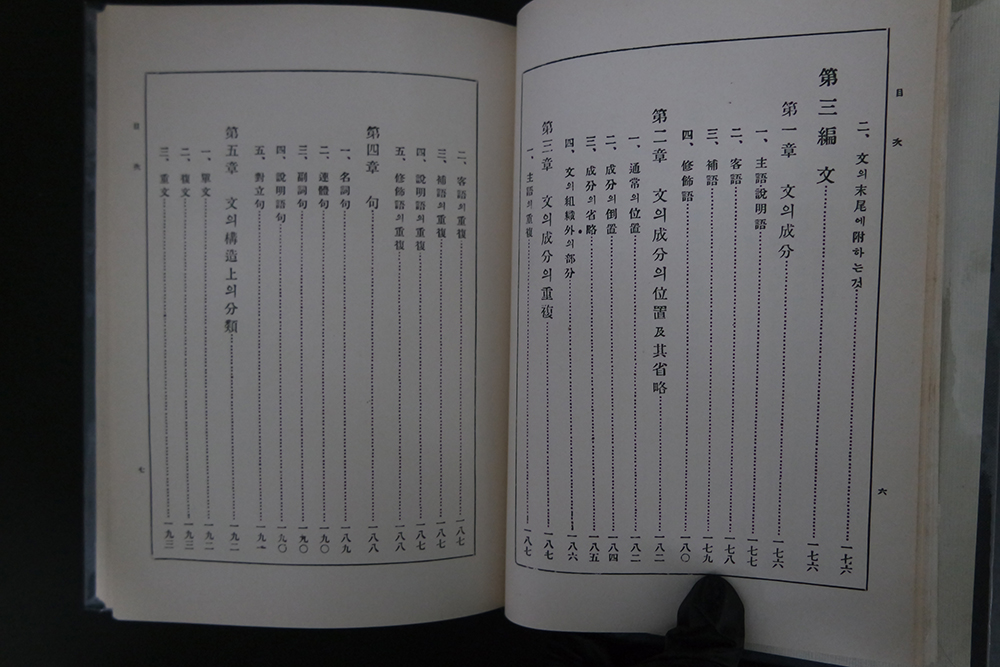 目次
二、文의末尾에附하는것 一七六
第三編 文 一七六
第一章 文의成分 一七六
一、主語說明語 一七七
二、客語 一七八
三、補語 一七九
四、修飾語 一八〇
第二章 文의成分의位置及其省略 一八二
一、通常의位置 一八二
二、成分의倒置 一八四
三、成分의省略 一八五
四、文의組織外의部分 一八六
第三章 文의成分의重複 一八七
一、主語의重複 一八七
六
目次
二、客語의重複 一八七
三、補語의重複 一八七
四、說明語의重複 一八七
五、修飾語의重複 一八八
第四章 句 一八八
一、名詞句 一八九
二、連體句 一九〇
三、副詞句 一九〇
四、說明語句 一九〇
五、對立句 一九一
第五章 文의構造上의分類 一九二
一、單文 一九二
二、複文 一九三
三、重文 一九三
七